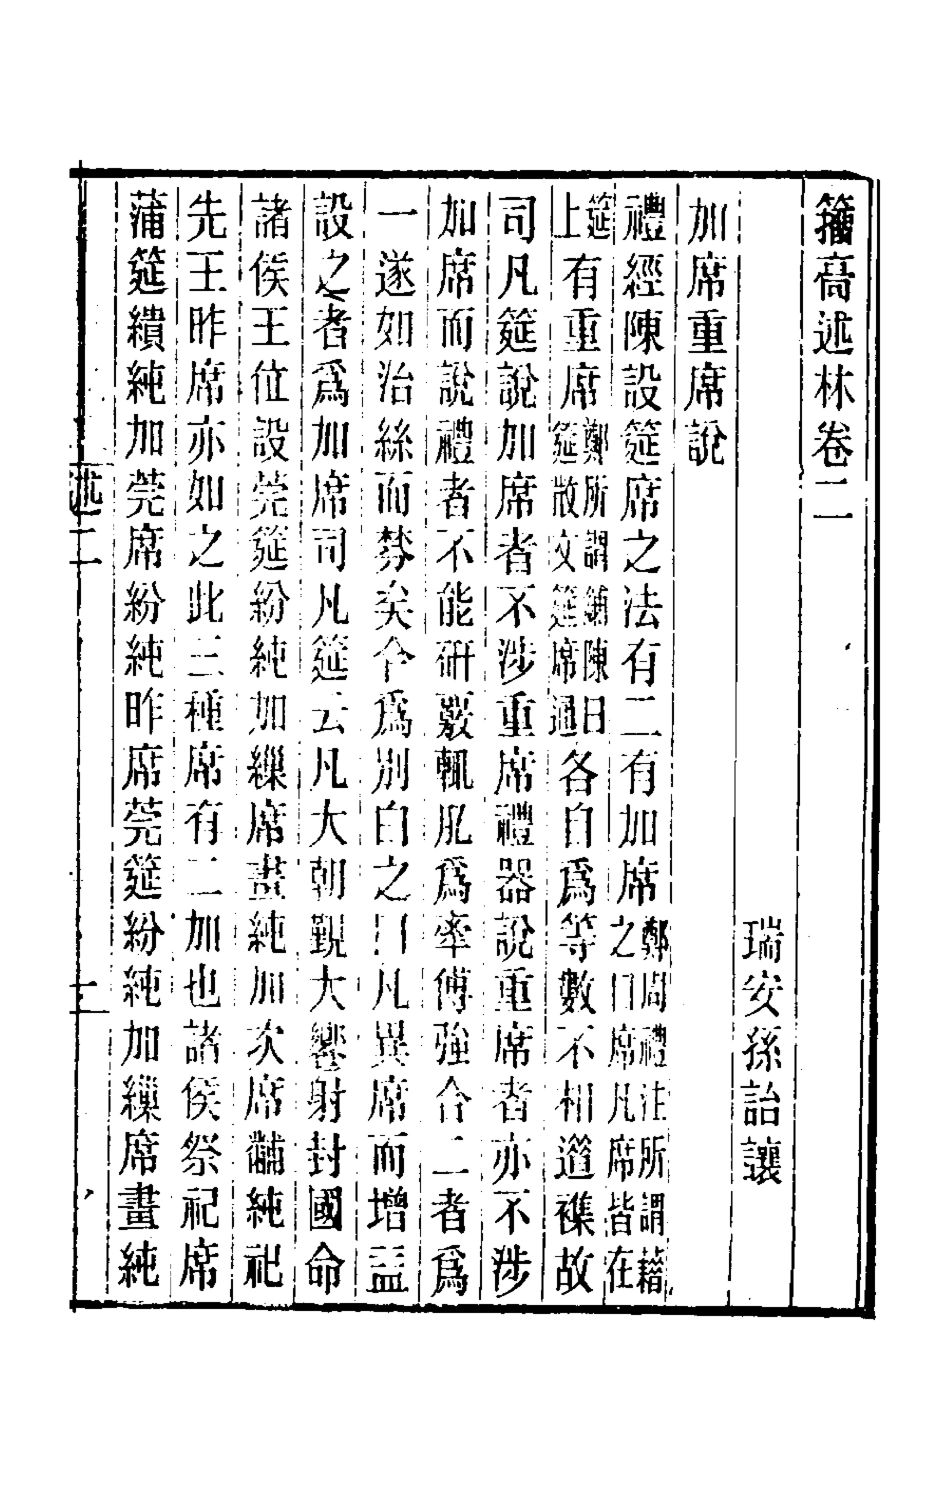 籀高述林卷二
瑞安孫詒讓
加席重席說
禮經陳設筵席之法有二有加席鄭周禮注所謂藉之曰席凡席皆在
筵上有重席鄭所謂鋪陳曰筵散文筵席通各自爲等數不相遝襍故
司凡筵說加席者不涉重席禮器說重席者亦不涉
加席而說禮者不能研覈輒肊爲牽傅強合二者爲
一遂如治絲而棼矣今爲別白之曰凡異席而增益
設之者爲加席司凡筵云凡大朝覲大饗射封國命
諸侯王位設莞筵紛純加繅席畫純加次席黼純祀
先王昨席亦如之此三種席有二加也諸侯祭祀席
蒲筵繢純加莞席紛純昨席莞筵紛純加繅席畫純
述二